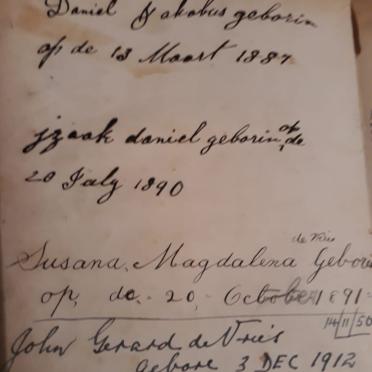 Daniel Jakobus geborin
op de 13 Maart 1887
jzaak daniel geborin op de
20 July 1890
de Vries
Susana Magdalena Gebori
op de 20 October 1891
14/11/50
John Gerard de Vries
gebore 3 DEC 1912